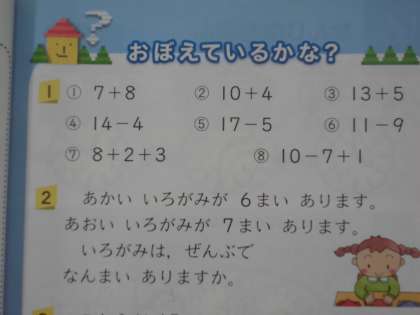 ?
おぼえているかな?
1 ① 7+8 ② 10+4 ③ 13+5
④ 14-4 ⑤ 17-5 ⑥ 11-9
⑦ 8+2+3 ⑧ 10-7+1
2 あかい いろがみが 6まい あります。
あおい いろがみが 7まい あります。
いろがみは,ぜんぶで
なんまい ありますか。